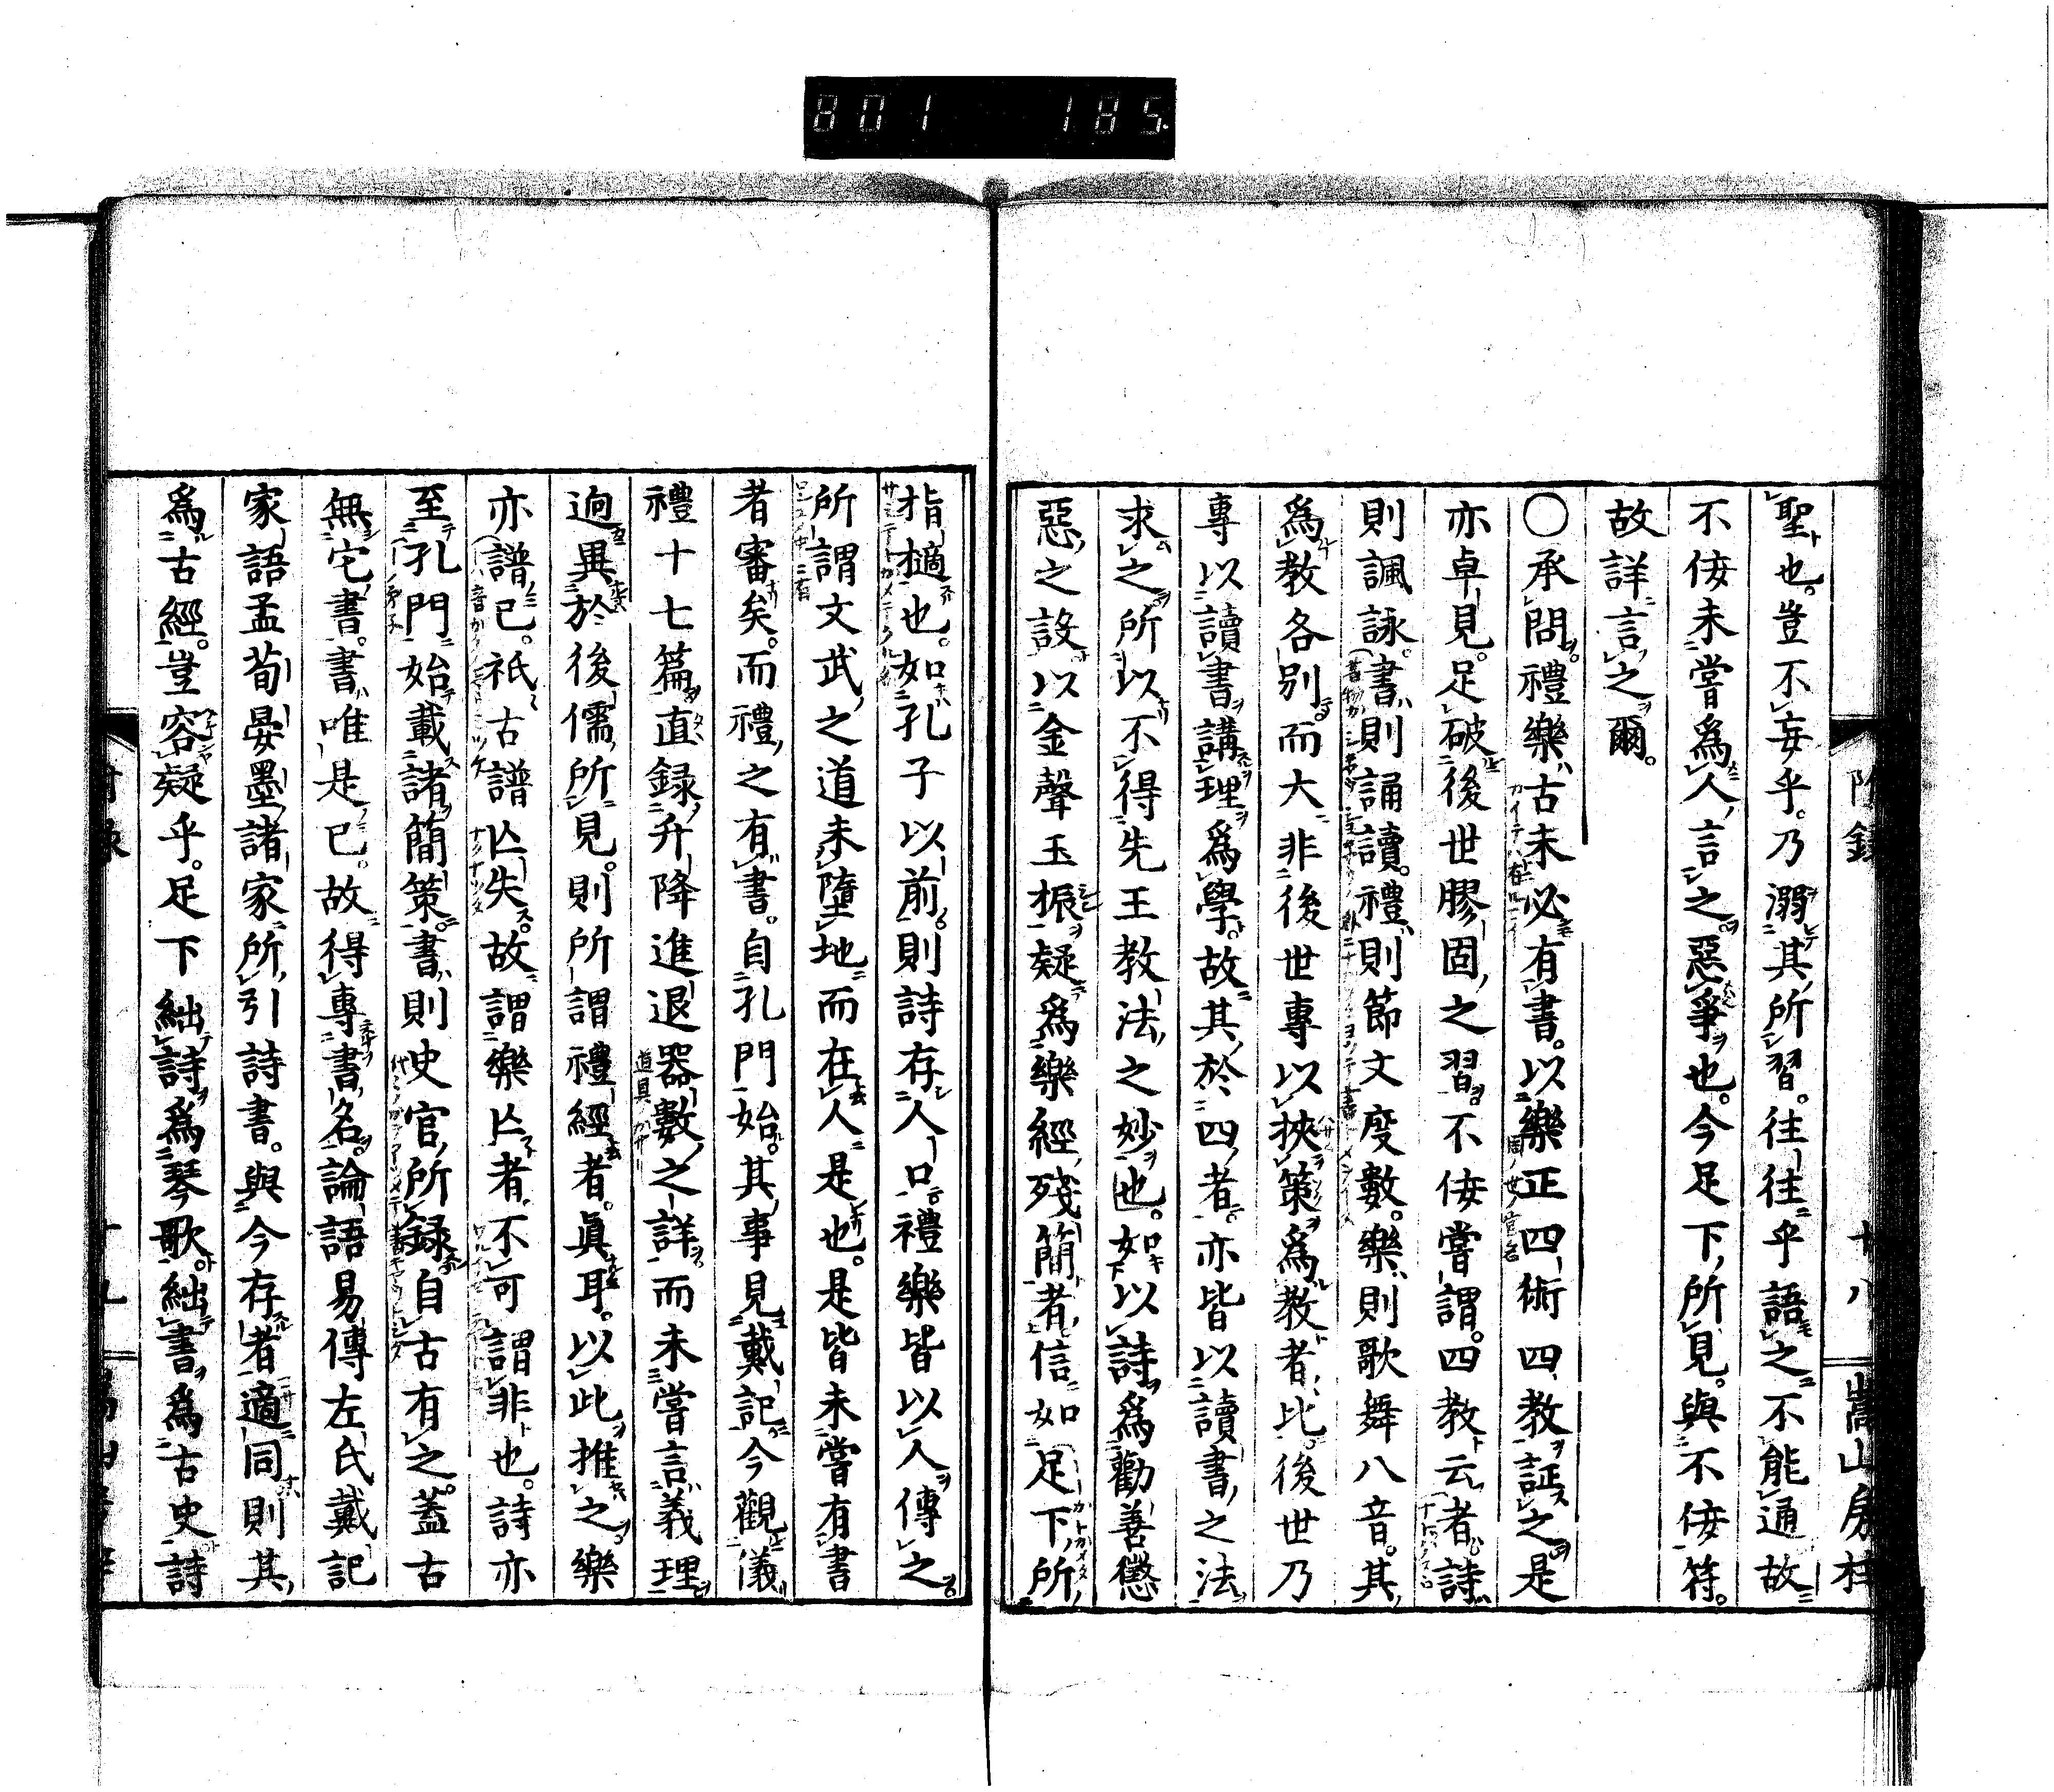 801 185
附錄 廿八 嵩山房梓
聖也。豈不妄乎。乃溺其所習。往往乎語之不能通故
不佞未嘗爲人言之。惡爭也。今足下所見。與不佞符。
故詳言之爾。
〇承問禮樂古未必有書。以樂正四術四教証之是
亦卓見。足破後世膠固之習。不佞嘗謂。四教云者詩
則諷詠。書則誦讀。禮則節文度數。樂則歌舞八音。其
爲教各別而大非後世專以挾策爲教者比。後世乃
專以讀書講理爲學。故其於四者亦皆以讀書之法
求之所以不得先王教法之妙也。如以詩爲勸善懲
惡之設以金聲玉振疑爲樂經殘簡者信如足下所
指擿也。如孔子以前則詩存人口禮樂皆以人傳之
所謂文武之道未墮地而在人是也。是皆未嘗有書
者審矣。而禮之有書。自孔門始。其事見戴記。今觀儀
禮十七篇直錄升降進退器數之詳而未嘗言義理
逈異於後儒所見。則所謂禮經者。眞耳。以此推之樂
亦譜已。祇古譜亾失。故謂樂亾者不可謂非也。詩亦
至孔門始載諸簡策。書則史官所錄自古有之。蓋古
無它書。書唯是已。故得專書名。論語易傳左氏戴記
家語孟荀晏墨諸家所引詩書。與今存者適同則其
爲古經。豈容疑乎。足下絀詩爲琴歌。絀書爲古史詩